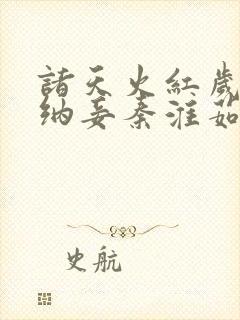 諸天火紅歲
納妾秦淮茹
史航